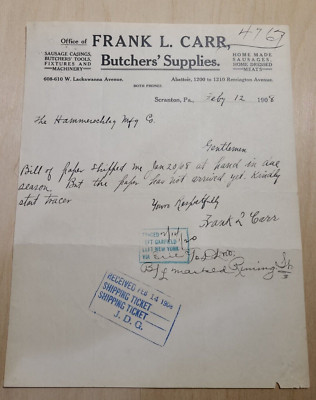 Office of
FRANK L. CARR,
Butchers' Supplies.
SAUSAGE CASINGS,
BUTCHERS' TOOLS,
FIXTURES AND
MACHINERY
HOME MADE
SAUSAGES,
HOME DRESSED
MEATS
608-610 W. Lackawanna Avenue.
Abattoir, 1200 to 1210 Remington Avenue.
BOTH PHONES
Scranton, Pa., Feby 12 1908
The Hammerschlag Mfg Co.
Gentlemen
Bill of paper shipped me Jan 20/08 at hand in one
season. But the paper has not arrived yet. Kindly
start tracer
Yours Respectfully
Frank L Carr
LEFT GARFIELD
LEFT NEW YORK
VIA
B/L marked
RECEIVED FEB 14 1908
SHIPPING TICKET
SHIPPING TICKET
J. D. G.